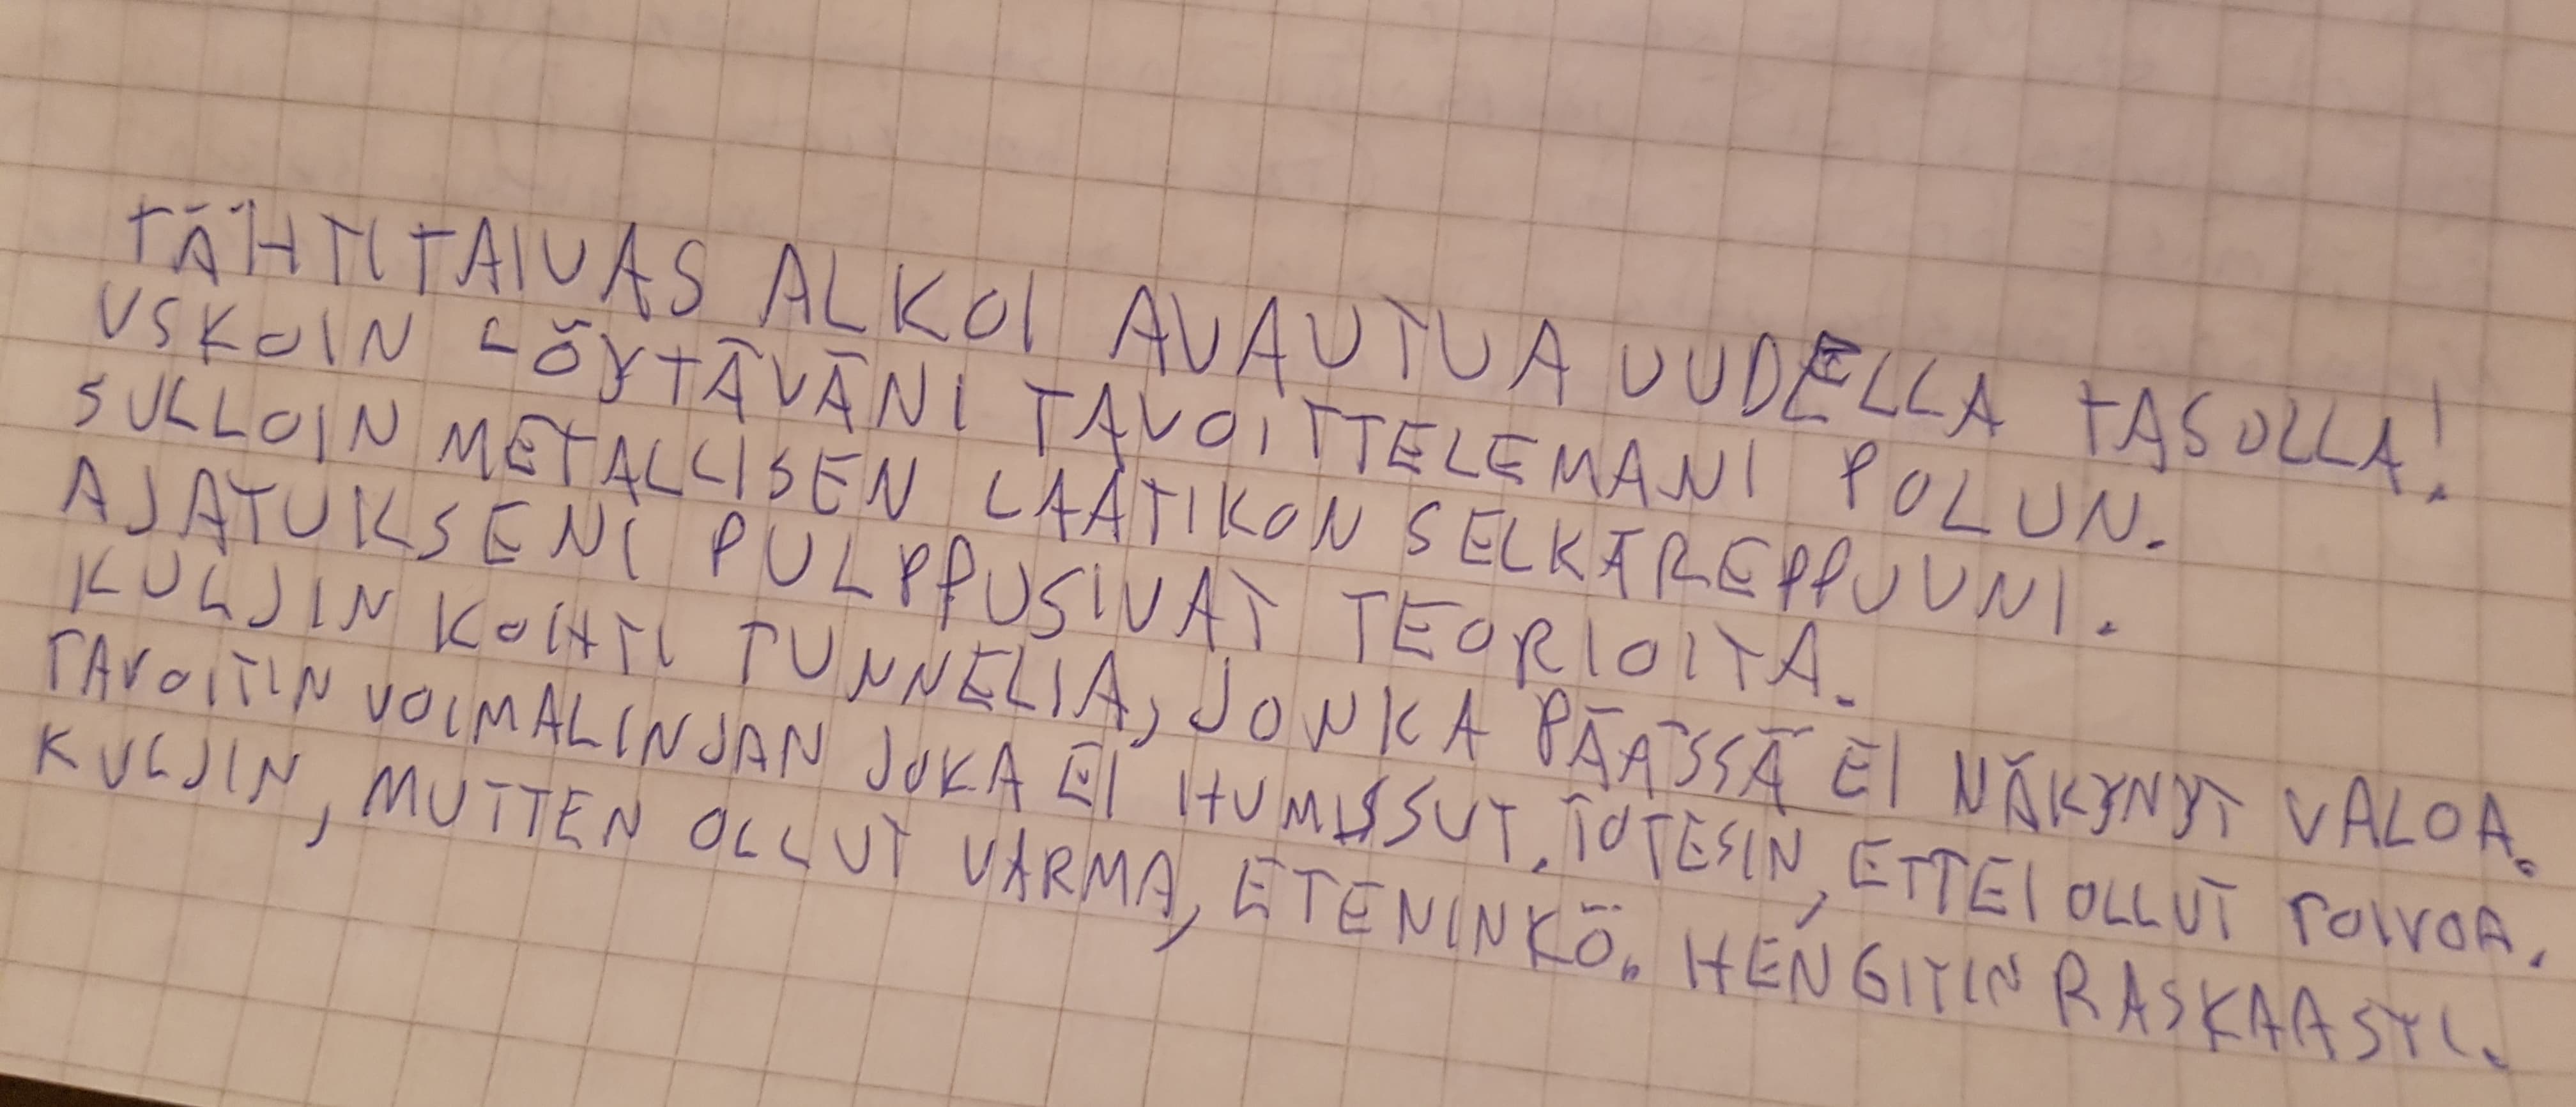 TÄHTITAIVAS ALKOI AVAUTUA UUDELLA TASOLLA!
USKOIN LÖYTÄVÄNI TAVOITTELEMANI POLUN.
SULLOIN METALLISEN LAATIKON SELKÄREPPUUNI.
AJATUKSENI PULPPUSIVAT TEORIOITA.
KULJIN KOHTI TUNNELIA, JONKA PÄÄSSÄ EI NÄKYNYT VALOA.
TAVOITIN VOIMALINJAN JOKA EI HUMISSUT. TOTESIN, ETTEI OLLUT TOIVOA.
KULJIN, MUTTEN OLLUT VARMA, ETENINKÖ. HENGITIN RASKAASTI.